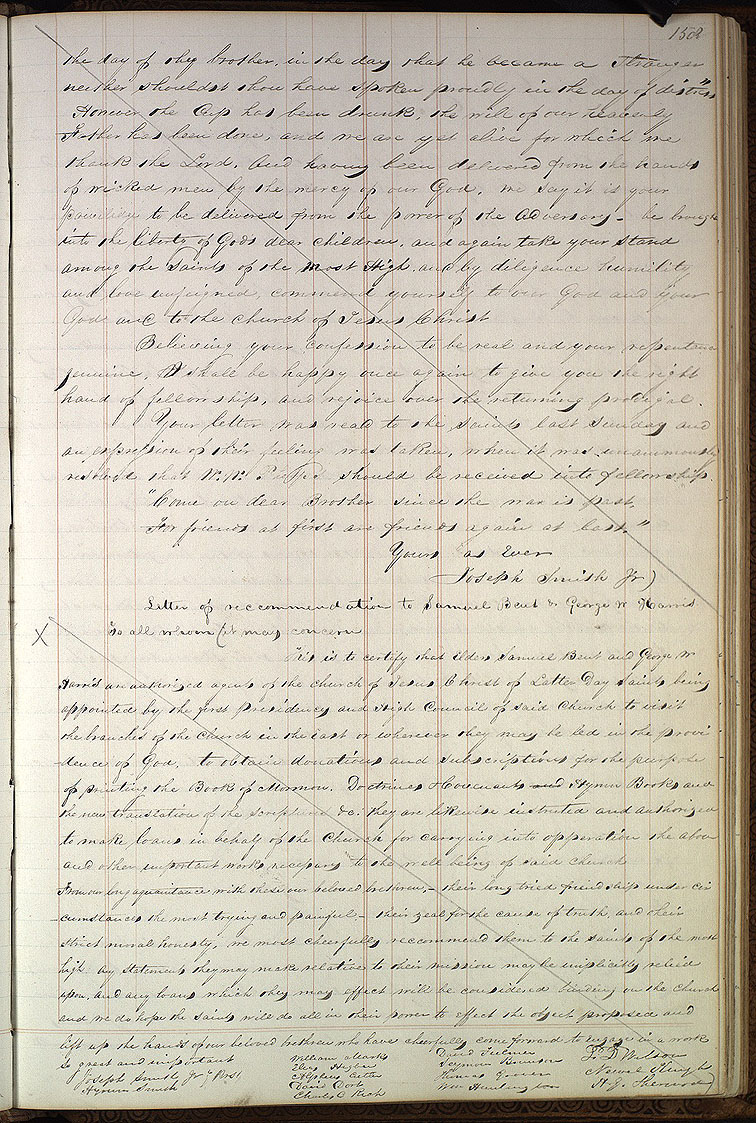 158
the day of thy brother, in the day that he became a stranger
neither shouldst thou have spoken proudly in the day of distress
However the Cup has been drunk, the will of our heavenly
Father has been done, and we are yet alive for which we
thank the Lord. And having been delivered from the hands
of wicked men by the mercy of our God, we say it is your
privilege to be delivered from the power of the Adversary — be brought
into the liberty of Gods dear children, and again take your stand
among the Saints of the Most High, and by diligence humility
and love unfeigned, commend yourself to our God and your
God and to the church of Jesus Christ
Believing your confession to be real and your repentance
genuine, I shall be happy once again to give you the right
hand of fellowship, and rejoice over the returning prodigal.
Your letter was read to the saints last Sunday and
an expression of their feeling was taken, when it was unanimously
resolved that W. W. Phelps should be received into fellowship.
"Come on dear Brother since the war is past,
For friends at first are friends again at last."
Yours as Ever
Joseph Smith Jr)
Letter of reccommendation to Samuel Bent & George W Harris
X To all whom it may concern
This is to certify that elders Samuel Bent and George W
Harris an authorized agents of the church of Jesus Christ of Latter Day saints being
appointed by the first Presidency and High Council of said Church to visit
the branches of the Church in the east or wherever they may be led in the provi
dence of God, to obtain donations and subscriptions for the purpose
of printing the Book of Mormon, Doctrines & Covenants and Hymn Books and
the new translation of the scriptures &c. they are likewise instructed and authorized
to make loans in behalf of the Church for carrying into opperation the above
and other important works necessary to the well being of said church
From our long aquaintance with these our beloved brethren, — their long tried friendship under cir
cumstances the most trying and painful — their zeal for the cause of truth, and their
strict moral honesty, we most cheerfully reccommend them to the saints of the most
high any statement they may make relative to their mission may be implicitly relied
upon, and any loans which they may effect will be considered binding on the church
and we do hope the saints will do all in their power to effect the object proposed and
lift up the hands of our beloved brethren who have cheerfully come forward to engage in a work
so great and important
Joseph Smith Jr Pres.
Hyrum Smith
William Marks
Elias Higbee
Alpheus Cutler
David Dort
Charles C Rich
David Fulmer
Seymour Brunson
Thomas Grover
Wm Huntington
L D Wilson
Newel Knight
H. G. Sherwood